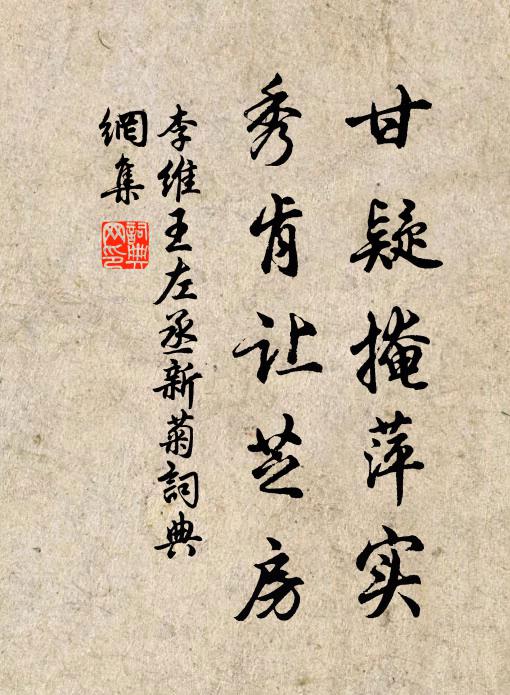 甘疑掩萍实
秀肯让芝房
李维王左丞新菊詞典
網集
詞典
网印